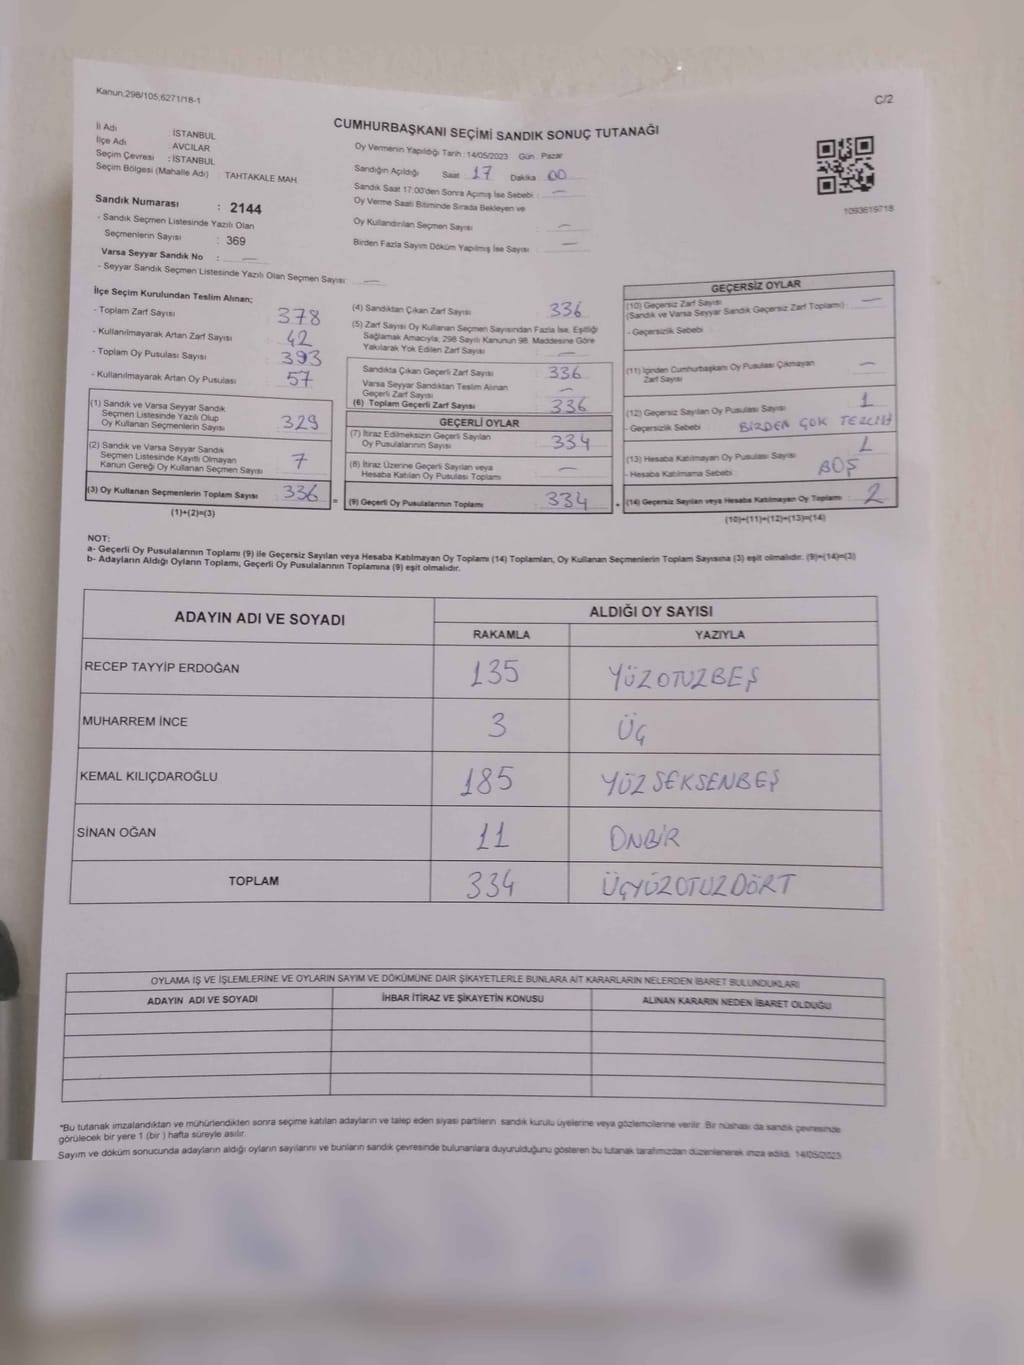 Kanun.298/105,6271/18-1
C/2
CUMHURBAŞKANI SEÇİMİ SANDIK SONUÇ TUTANAĞI
İl Adı : İSTANBUL
İlçe Adı : AVCILAR
Seçim Çevresi : İSTANBUL
Seçim Bölgesi (Mahalle Adı) : TAHTAKALE MAH.
Oy Vermenin Yapıldığı Tarih :14/05/2023 Gün : Pazar
Sandığın Açıldığı Saat : 17 Dakika : 00
Sandık Saat 17:00'den Sonra Açımış İse Sebebi : —
Oy Verme Saati Bitiminde Sırada Bekleyen ve
Oy Kullandırılan Seçmen Sayısı : —
Birden Fazla Sayım Döküm Yapılmış İse Sayısı : —
1093619718
Sandık Numarası : 2144
- Sandık Seçmen Listesinde Yazılı Olan
Seçmenlerin Sayısı : 369
Varsa Seyyar Sandık No : —
- Seyyar Sandık Seçmen Listesinde Yazılı Olan Seçmen Sayısı: —
İlçe Seçim Kurulundan Teslim Alınan;
- Toplam Zarf Sayısı : 378
- Kullanılmayarak Artan Zarf Sayısı : 42
- Toplam Oy Pusulası Sayısı : 393
- Kullanılmayarak Artan Oy Pusulası : 57
(1) Sandık ve Varsa Seyyar Sandık
Seçmen Listesinde Yazılı Olup
Oy Kullanan Seçmenlerin Sayısı : 329
(2) Sandık ve Varsa Seyyar Sandık
Seçmen Listesinde Kayıtlı Olmayan
Kanun Gereği Oy Kullanan Seçmen Sayısı : 7
(3) Oy Kullanan Seçmenlerin Toplam Sayısı : 336
(1)+(2)=(3)
=
(4) Sandıktan Çıkan Zarf Sayısı : 336
(5) Zarf Sayısı Oy Kullanan Seçmen Sayısından Fazla İse, Eşitliği
Sağlamak Amacıyla; 298 Sayılı Kanunun 98. Maddesine Göre
Yakılarak Yok Edilen Zarf Sayısı : —
Sandıkta Çıkan Geçerli Zarf Sayısı : 336
Varsa Seyyar Sandıktan Teslim Alınan
Geçerli Zarf Sayısı : —
(6) Toplam Geçerli Zarf Sayısı : 336
GEÇERLİ OYLAR
(7) İtiraz Edilmeksizin Geçerli Sayılan
Oy Pusulalarının Sayısı : 334
(8) İtiraz Üzerine Geçerli Sayılan veya
Hesaba Katılan Oy Pusulası Toplamı : —
(9) Geçerli Oy Pusulalarının Toplamı : 334
+
GEÇERSİZ OYLAR
(10) Geçersiz Zarf Sayısı
(Sandık ve Varsa Seyyar Sandık Geçersiz Zarf Toplamı) : —
- Geçersizlik Sebebi :
(11) İçinden Cumhurbaşkanı Oy Pusulası Çıkmayan
Zarf Sayısı : —
(12) Geçersiz Sayılan Oy Pusulası Sayısı : 1
- Geçersizlik Sebebi : BİRDEN ÇOK TERCİH
(13) Hesaba Katılmayan Oy Pusulası Sayısı : 1
- Hesaba Katılmama Sebebi : BOŞ
(14) Geçersiz Sayılan veya Hesaba Katılmayan Oy Toplamı : 2
(10)+(11)+(12)+(13)=(14)
NOT:
a- Geçerli Oy Pusulalarının Toplamı (9) ile Geçersiz Sayılan veya Hesaba Katılmayan Oy Toplamı (14) Toplamları, Oy Kullanan Seçmenlerin Toplam Sayısına (3) eşit olmalıdır. (9)+(14)=(3)
b- Adayların Aldığı Oyların Toplamı, Geçerli Oy Pusulalarının Toplamına (9) eşit olmalıdır.
ADAYIN ADI VE SOYADI
ALDIĞI OY SAYISI
RAKAMLA YAZIYLA
RECEP TAYYİP ERDOĞAN 135 YÜZOTUZBEŞ
MUHARREM İNCE 3 ÜÇ
KEMAL KILIÇDAROĞLU 185 YÜZSEKSENBEŞ
SİNAN OĞAN 11 ONBİR
TOPLAM 334 ÜÇYÜZOTUZDÖRT
OYLAMA İŞ VE İŞLEMLERİNE VE OYLARIN SAYIM VE DÖKÜMÜNE DAİR ŞİKAYETLERLE BUNLARA AİT KARARLARIN NELERDEN İBARET BULUNDUKLARI
ADAYIN ADI VE SOYADI İHBAR İTİRAZ VE ŞİKAYETİN KONUSU ALINAN KARARIN NEDEN İBARET OLDUĞU
*Bu tutanak imzalandıktan ve mühürlendikten sonra seçime katılan adayların ve talep eden siyasi partilerin sandık kurulu üyelerine veya gözlemcilerine verilir. Bir nüshası da sandık çevresinde
görülecek bir yere 1 (bir ) hafta süreyle asılır.
Sayım ve döküm sonucunda adayların aldığı oyların sayılarını ve bunların sandık çevresinde bulunanlara duyurulduğunu gösteren bu tutanak tarafımızdan düzenlenerek imza edildi. 14/05/2023